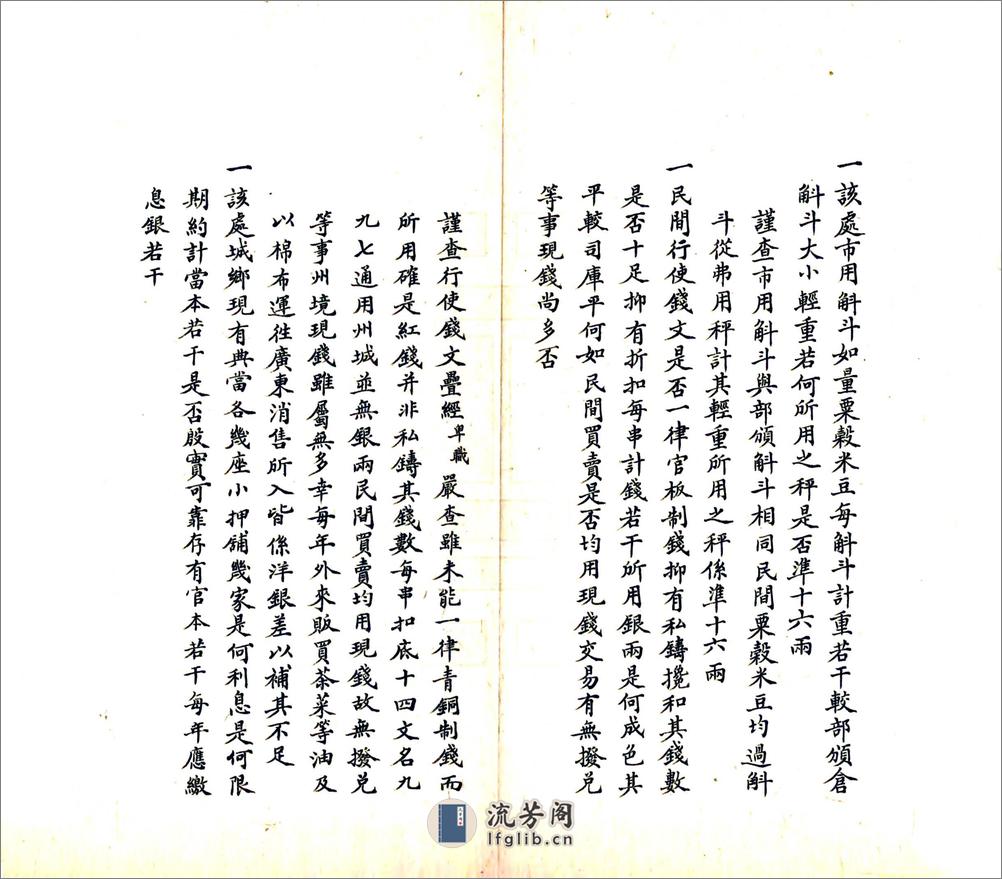 一該處市用斛斗如量粟穀米豆每斛斗計重若干較部頒倉
斛斗大小輕重若何所用之秤是否準十六兩
謹查市用斛斗與部頒斛斗相同民間粟穀米豆均過斛
斗從弗用秤計其輕重所用之秤係準十六兩
一民間行使錢文是否一律官板制錢抑有私鑄攙和其錢數
是否十足抑有折扣每串計錢若干所用銀兩是何成色其
平較司庫平何如民間買賣是否均用現錢交易有無撥兌
等事現錢尚多否
謹查行使錢文疊經卑職嚴查雖未能一律青銅制錢而
所用確是紅錢并非私鑄其錢數每串扣底十四文名九
九七通用州城並無銀兩民間買賣均用現錢故無撥兌
等事州境現錢雖屬無多幸每年外來販買茶菜等油及
以棉布運往廣東消售所入皆係洋銀差以補其不足
一該處城鄉現有典當各幾座小押舖幾家是何利息是何限
期約計當本若干是否殷實可靠存有官本若干每年應繳
息銀若干
流芳阁
lfglib.cn